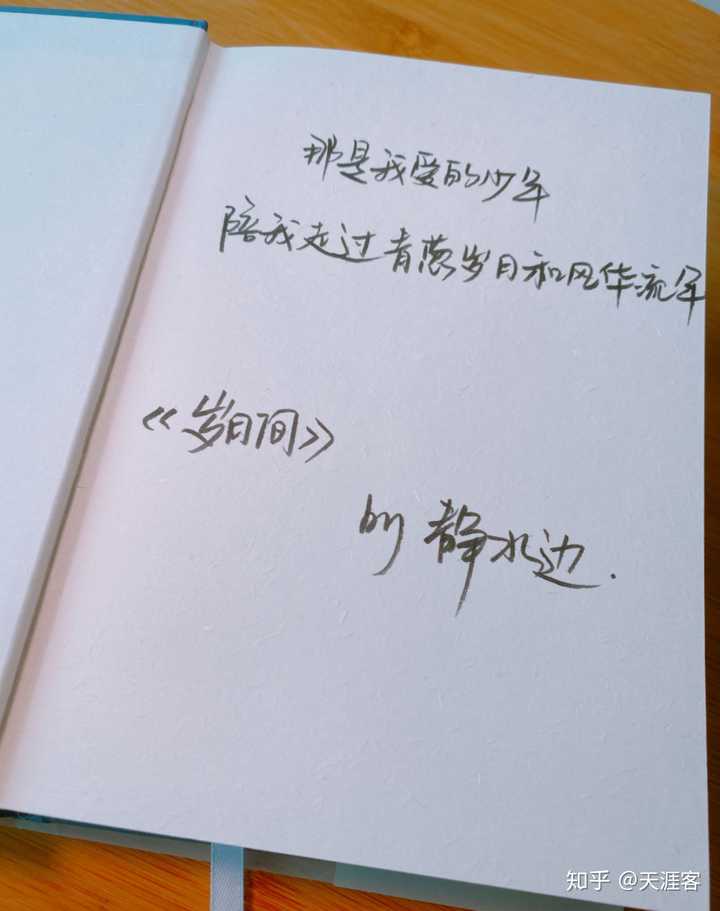 那是我爱的少年
陪我走过青葱岁月和风华流年
《岁月间》
by 静水边.
知乎 @天涯客